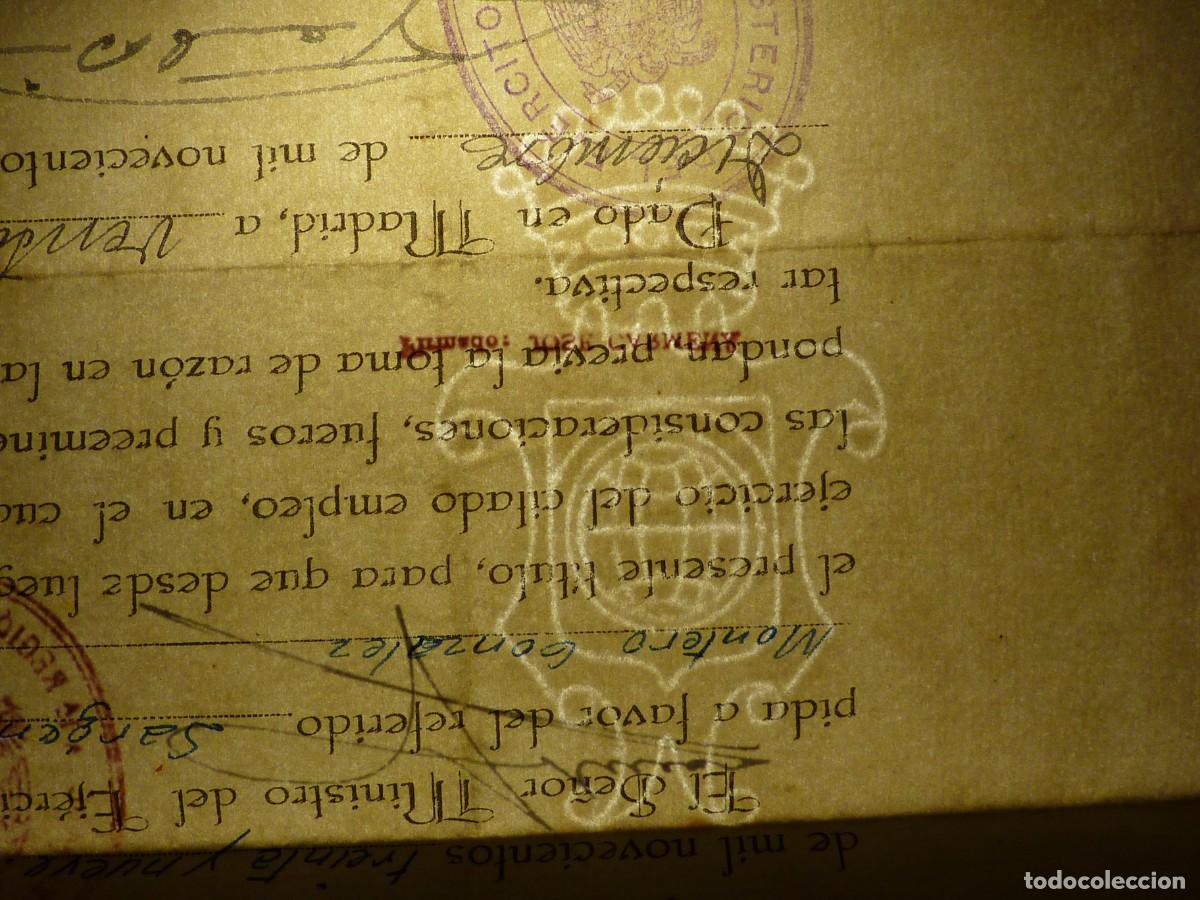 de mil novecientos treinta y nueve.
El Señor Ministro del Ejérci
pida a favor del referido Sargen
Montero Gonzalez
el presente título, para que desde lueg
ejercicio del citado empleo, en el cua
las consideraciones, fueros y preemine
pondan, previa la toma de razón en la
Firmado: JOSE CARMENA
tar respectiva.
Dado en Madrid, a
Diciembre de mil noveciento
MINISTERIO EJERCITO
todocoleccion